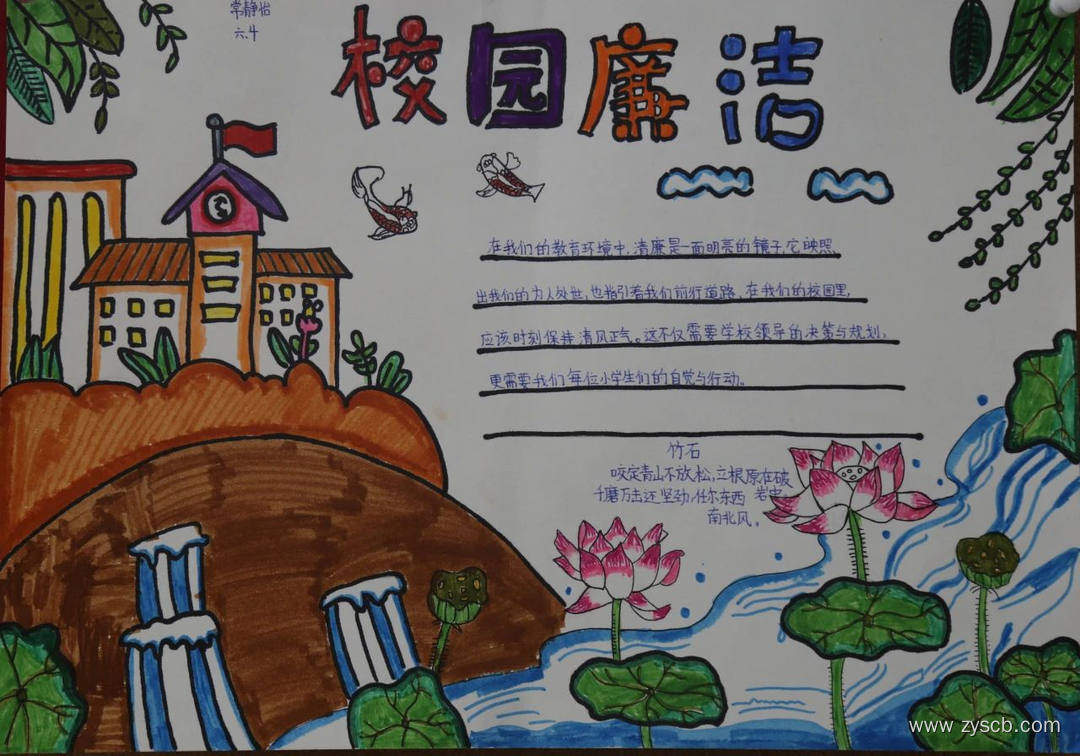 常静怡
六.4
校园廉洁
在我们的教育环境中,清廉是一面明亮的镜子,它映照
出我们的为人处世,也指引着我们前行道路,在我们的校园里,
应该时刻保持清风正气。这不仅需要学校领导的决策与规划,
更需要我们每位小学生们的自觉与行动。
竹石
咬定青山不放松,立根原在破
千磨万击还坚劲,任尔东西 岩中
南北风。
www.zyscb.com